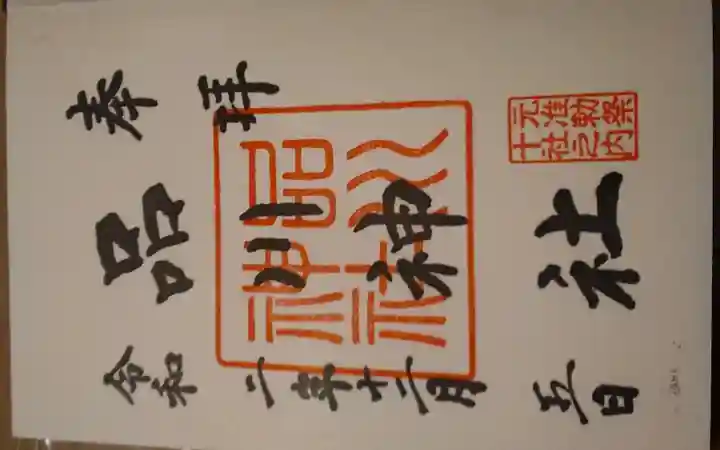 奉拝
元准勅祭
十社之内
品川神社
品川
神社
令和二年十二月五日